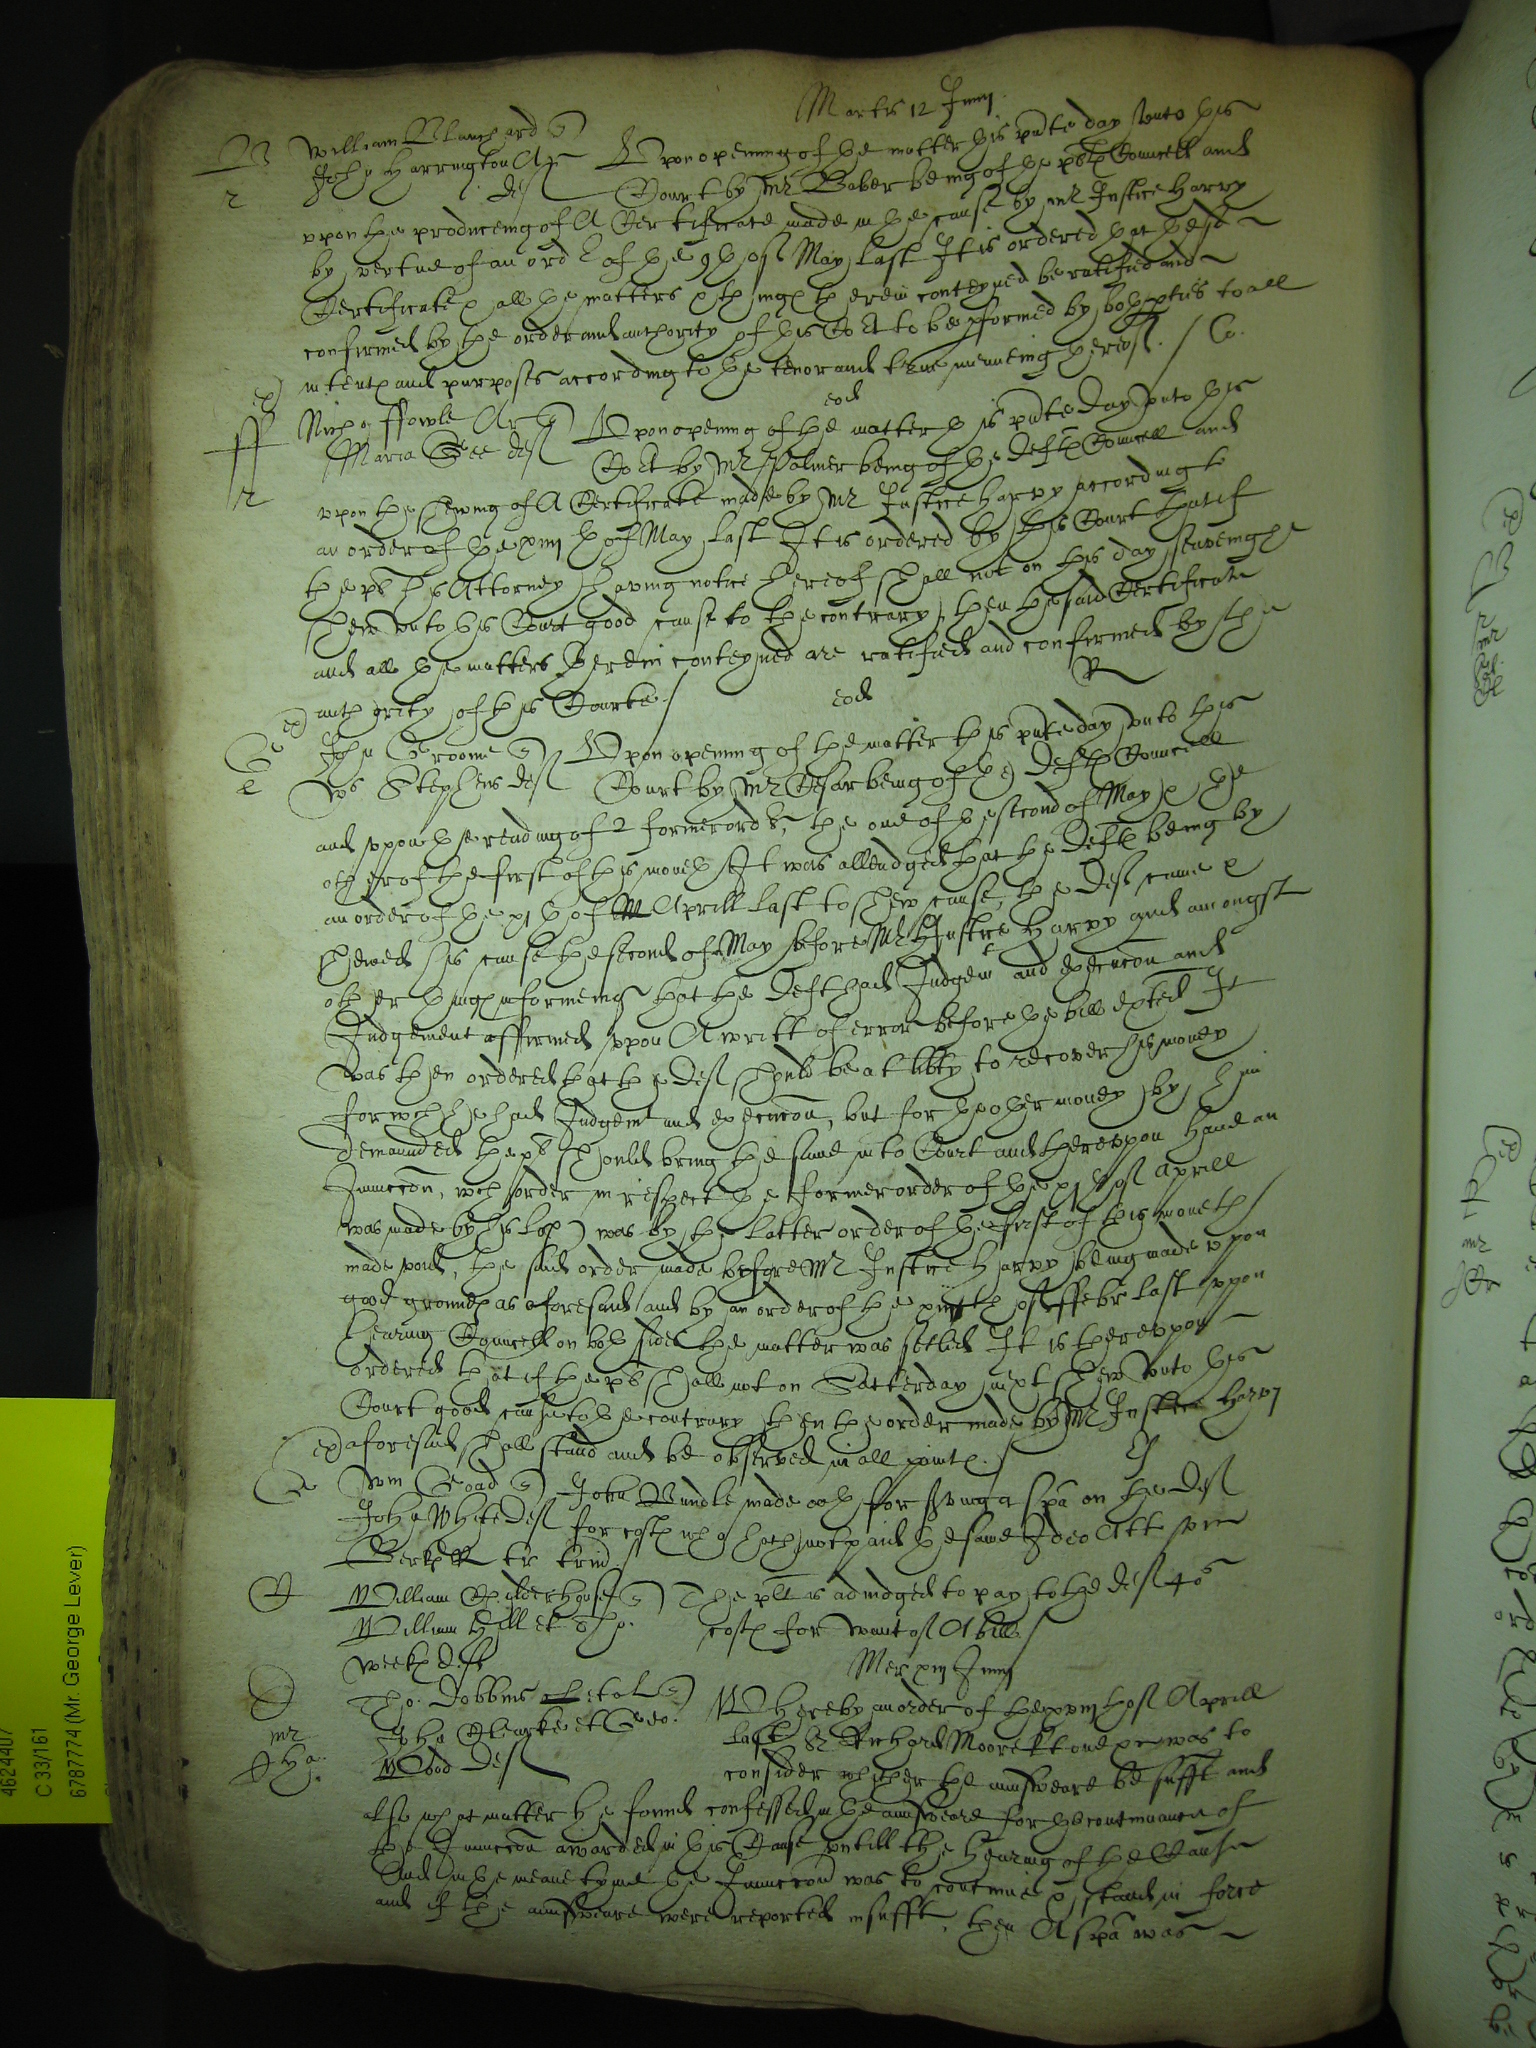 Martis 12 Junij
William Blanchard q
John Harrington Ar Upon opening of the matter this pnte day unto this
def Court by Mr Baber being of the plts Councell and
upon the produceing of A Certificate made in the cause by Mr Justice Harvy
by vertue of an ord of the 9th of May last It is ordered that the sd
Certificate & all the matters & things therein conteyned be ratified and
confirmed by the order and authority of this Cort to be pformed by both pties to all
intents and purposes according to the tenor and true meaneing thereof / Co.
eod
Nicho ffowle Ar q Upon opening of the matter this pnte Day unto this
Maria Gee def Cort by Mr Palmer being of the Defts Councell and
upon the shewing of A Certificate made by Mr Justice Harvy according to
an order of the xiiijth of May last It is ordered by this Court that if
the plt his Attorney haveing notice hereof shall not on this day seaveingth
shew unto this Court good cause to the contrary, then the said Certificate
and all the matters therein conteyned are ratified and confirmed by the
authority of this Courte / R
eod
John Groome q Upon opening of the matter this pnte day unto this
Wm Stephens def Court by Mr Cesar being of the Defts Councell
and uppon the reading of 2 former ordrs, the one of the second of May & the
other of the first of this moneth It was alleadged that the Deft being by
an order of the xjth of Aprill last to shew cause, the Def came &
shewed his cause the second of May before Mr Justice Harvy and amongst
other things informeing that the Deft had Judgemt and execucon and
Judgement affirmed upon A writt of error before the bill exhted It
was then ordered that the Def should be at libty to recover his money
for wch he had Judgemt and execucon, but for the other money by him
demaunded the plt should bring the same into Court and thereupon have an
Iniunccon, wch order in respect the former order of the xjth of Aprill
was made by his Lop was by the latter order of the first of this moneth
made void, the said order made before Mr Justice Harvy being made upon
good grounds as aforesaid and by an order of the of ffebr last uppon
hearing Councell on both sides the matter was setled It is thereupon
ordered that if the plt shall not on Satterday next shew unto this
Court good cause to the contrary then the order made by Mr Justice Harvy
aforesaid shall stand and be observed in all points /
Wm Goad q John made oth for serving a Spa on the Def
John White Def for costs who hath not paid the same Ideo Att
Berks tr trin
William q The plt is adiudged to pay to the Def 40s
William Hill et Tho. costs for want of A bill /
Weeks deft
Mer xiij Junij
Tho. Dobbins et al q Whereby an order of the xxiijth of Aprill
John Clearke et Geo. last Sr Richard Moore kt one &c was to
Wood Def consider whether the aunsweare be sufft and
also what matter he found confessed in the aunsweare for the continuance of
the Iniunccon awarded in this Cause untill the hearing of the Cause
And in the meane tyme the Iniunccon was to continue & stand in force
and if the aunsweare were reported insufft, then A spa was
4624407
C 33/161
6787774 (Mr. George Lever)